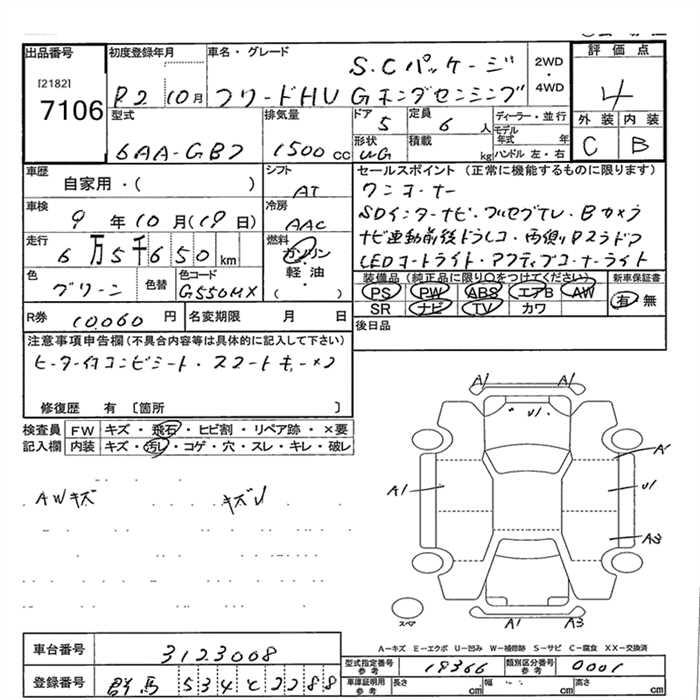 出品番号 初度登録年月 車名・グレード 評価点
[2182]
7106
R2 10月 フリードHV Gホンダセンシング
S.Cパッケージ
2WD
4WD
4
型式 排気量 ドア 定員 ディーラー・並行 外装 内装
5 6 人
モデル年式 年
6AA-GB7 1500 cc
形状 積載 kg ハンドル 左・右
WG
C B
車歴 シフト セールスポイント (正常に機能するものに限ります)
自家用・( ) AT ワンオーナー
車検 冷房 SDインターナビ・フルセグTV・Bカメラ
9 年 10 月 (19 日) AAC
走行 燃料 ナビ連動前後ドラレコ・両側Pスライドドア
6万5千650 km ガソリン
軽油
( )
LEDオートライト・アクティブコーナーライト
色 色替 色コード 装備品(純正品に限り○をつけてください) 新車保証書
グリーン G550MX
PS PW ABS エアB AW 有 無
SR ナビ TV カワ
R券 10,060 円 名変期限 月 日 後日品
注意事項申告欄 (不具合内容等は具体的に記入して下さい)
ヒーター付コンビシート・スマートキー×2
修復歴 有 [箇所 ]
検査員 FW キズ・飛石・ヒビ割・リペア跡・×要
記入欄 内装 キズ・汚レ・コゲ・穴・スレ・キレ・破レ
AWキズ キズU
A1 A1
U1
A1
A1 U1
A3
スペア A1 A3
A-キズ E-エクボ U-凹み W-補修跡 S-サビ C-腐食 XX-交換済
車台番号 3123008
型式指定番号 参考 19366 類別区分番号 参考 0001
登録番号 群馬 534 と 2288
車庫証明用 参考 長さ cm 幅 cm 高さ cm